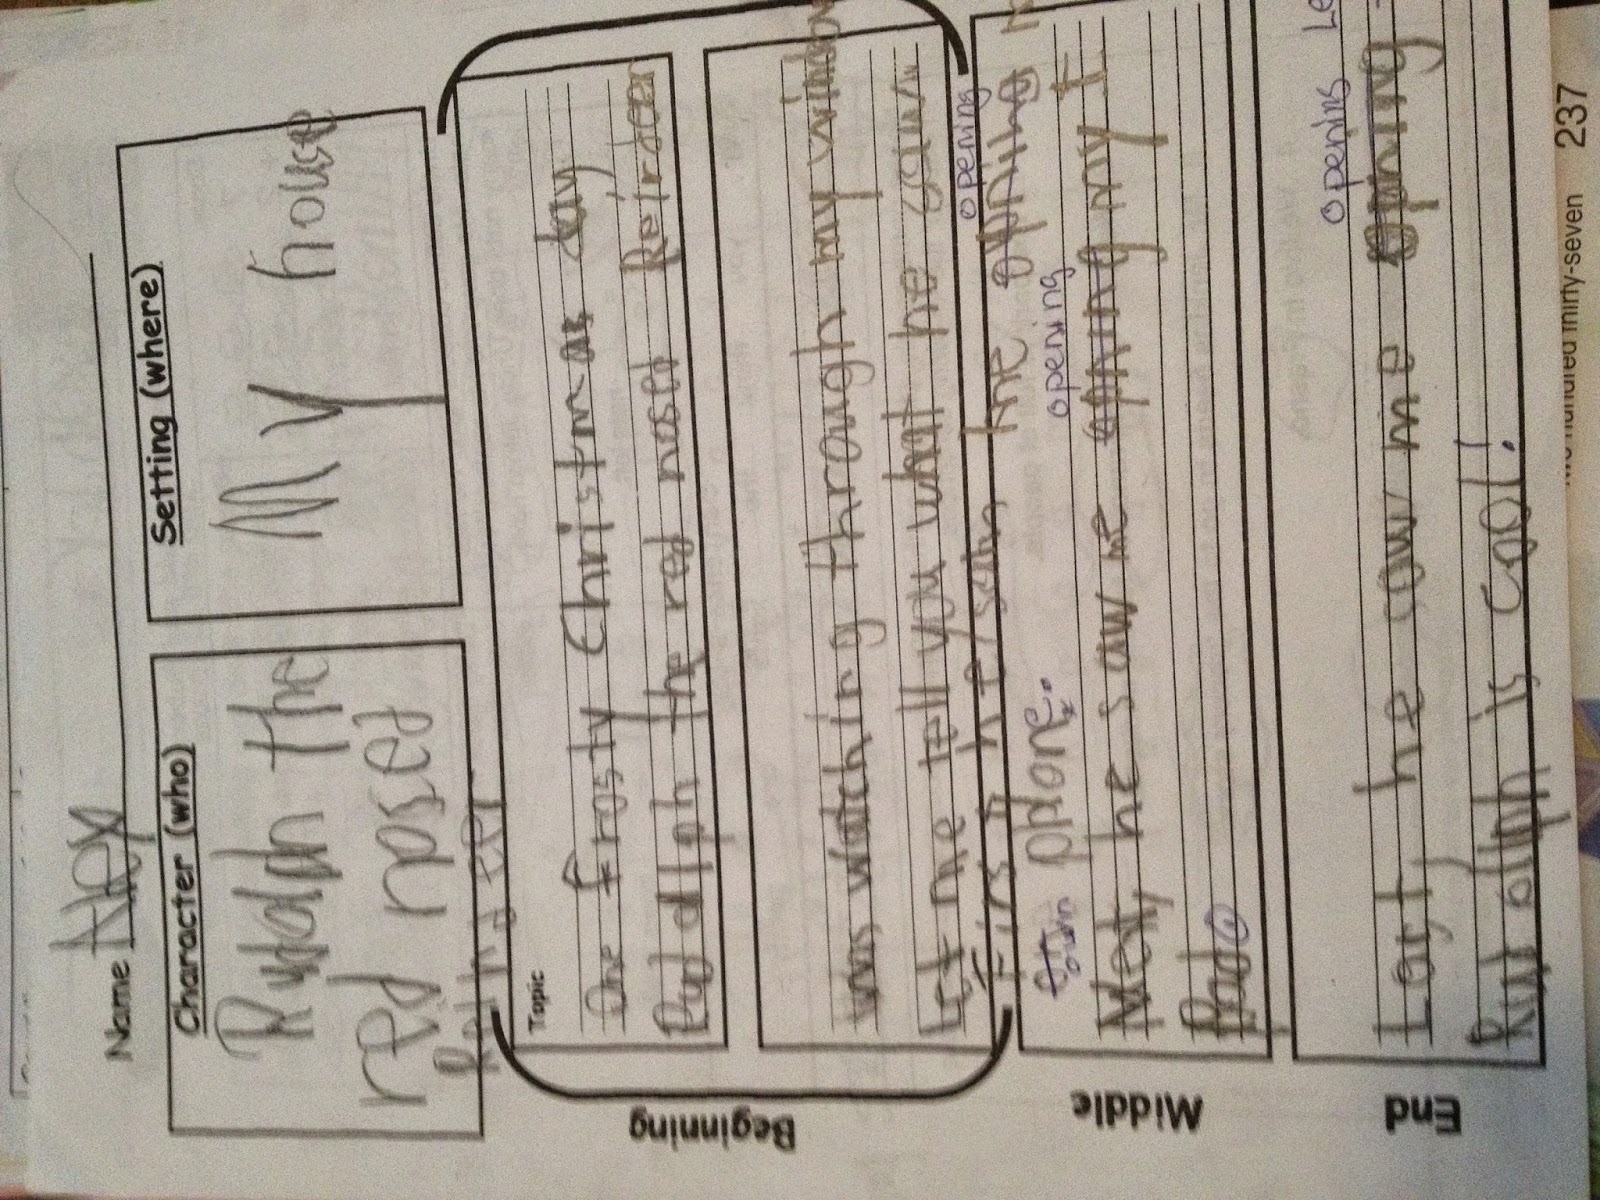 Name Alex
Character (who)
Rudolph the
red nosed
Setting (where)
My house
Beginning
Topic
One frosty Christmas day
Rudolph the red nosed Reirdeer
was watching through my window
Let me tell you what he saw
First, he saw me opning
opening
own pdone.
opening
Middle
Next, he saw me opning my I
Pad.
opening
End
Last, he saw me opning
Rudolph is cool!
237
two hundred thirty-seven